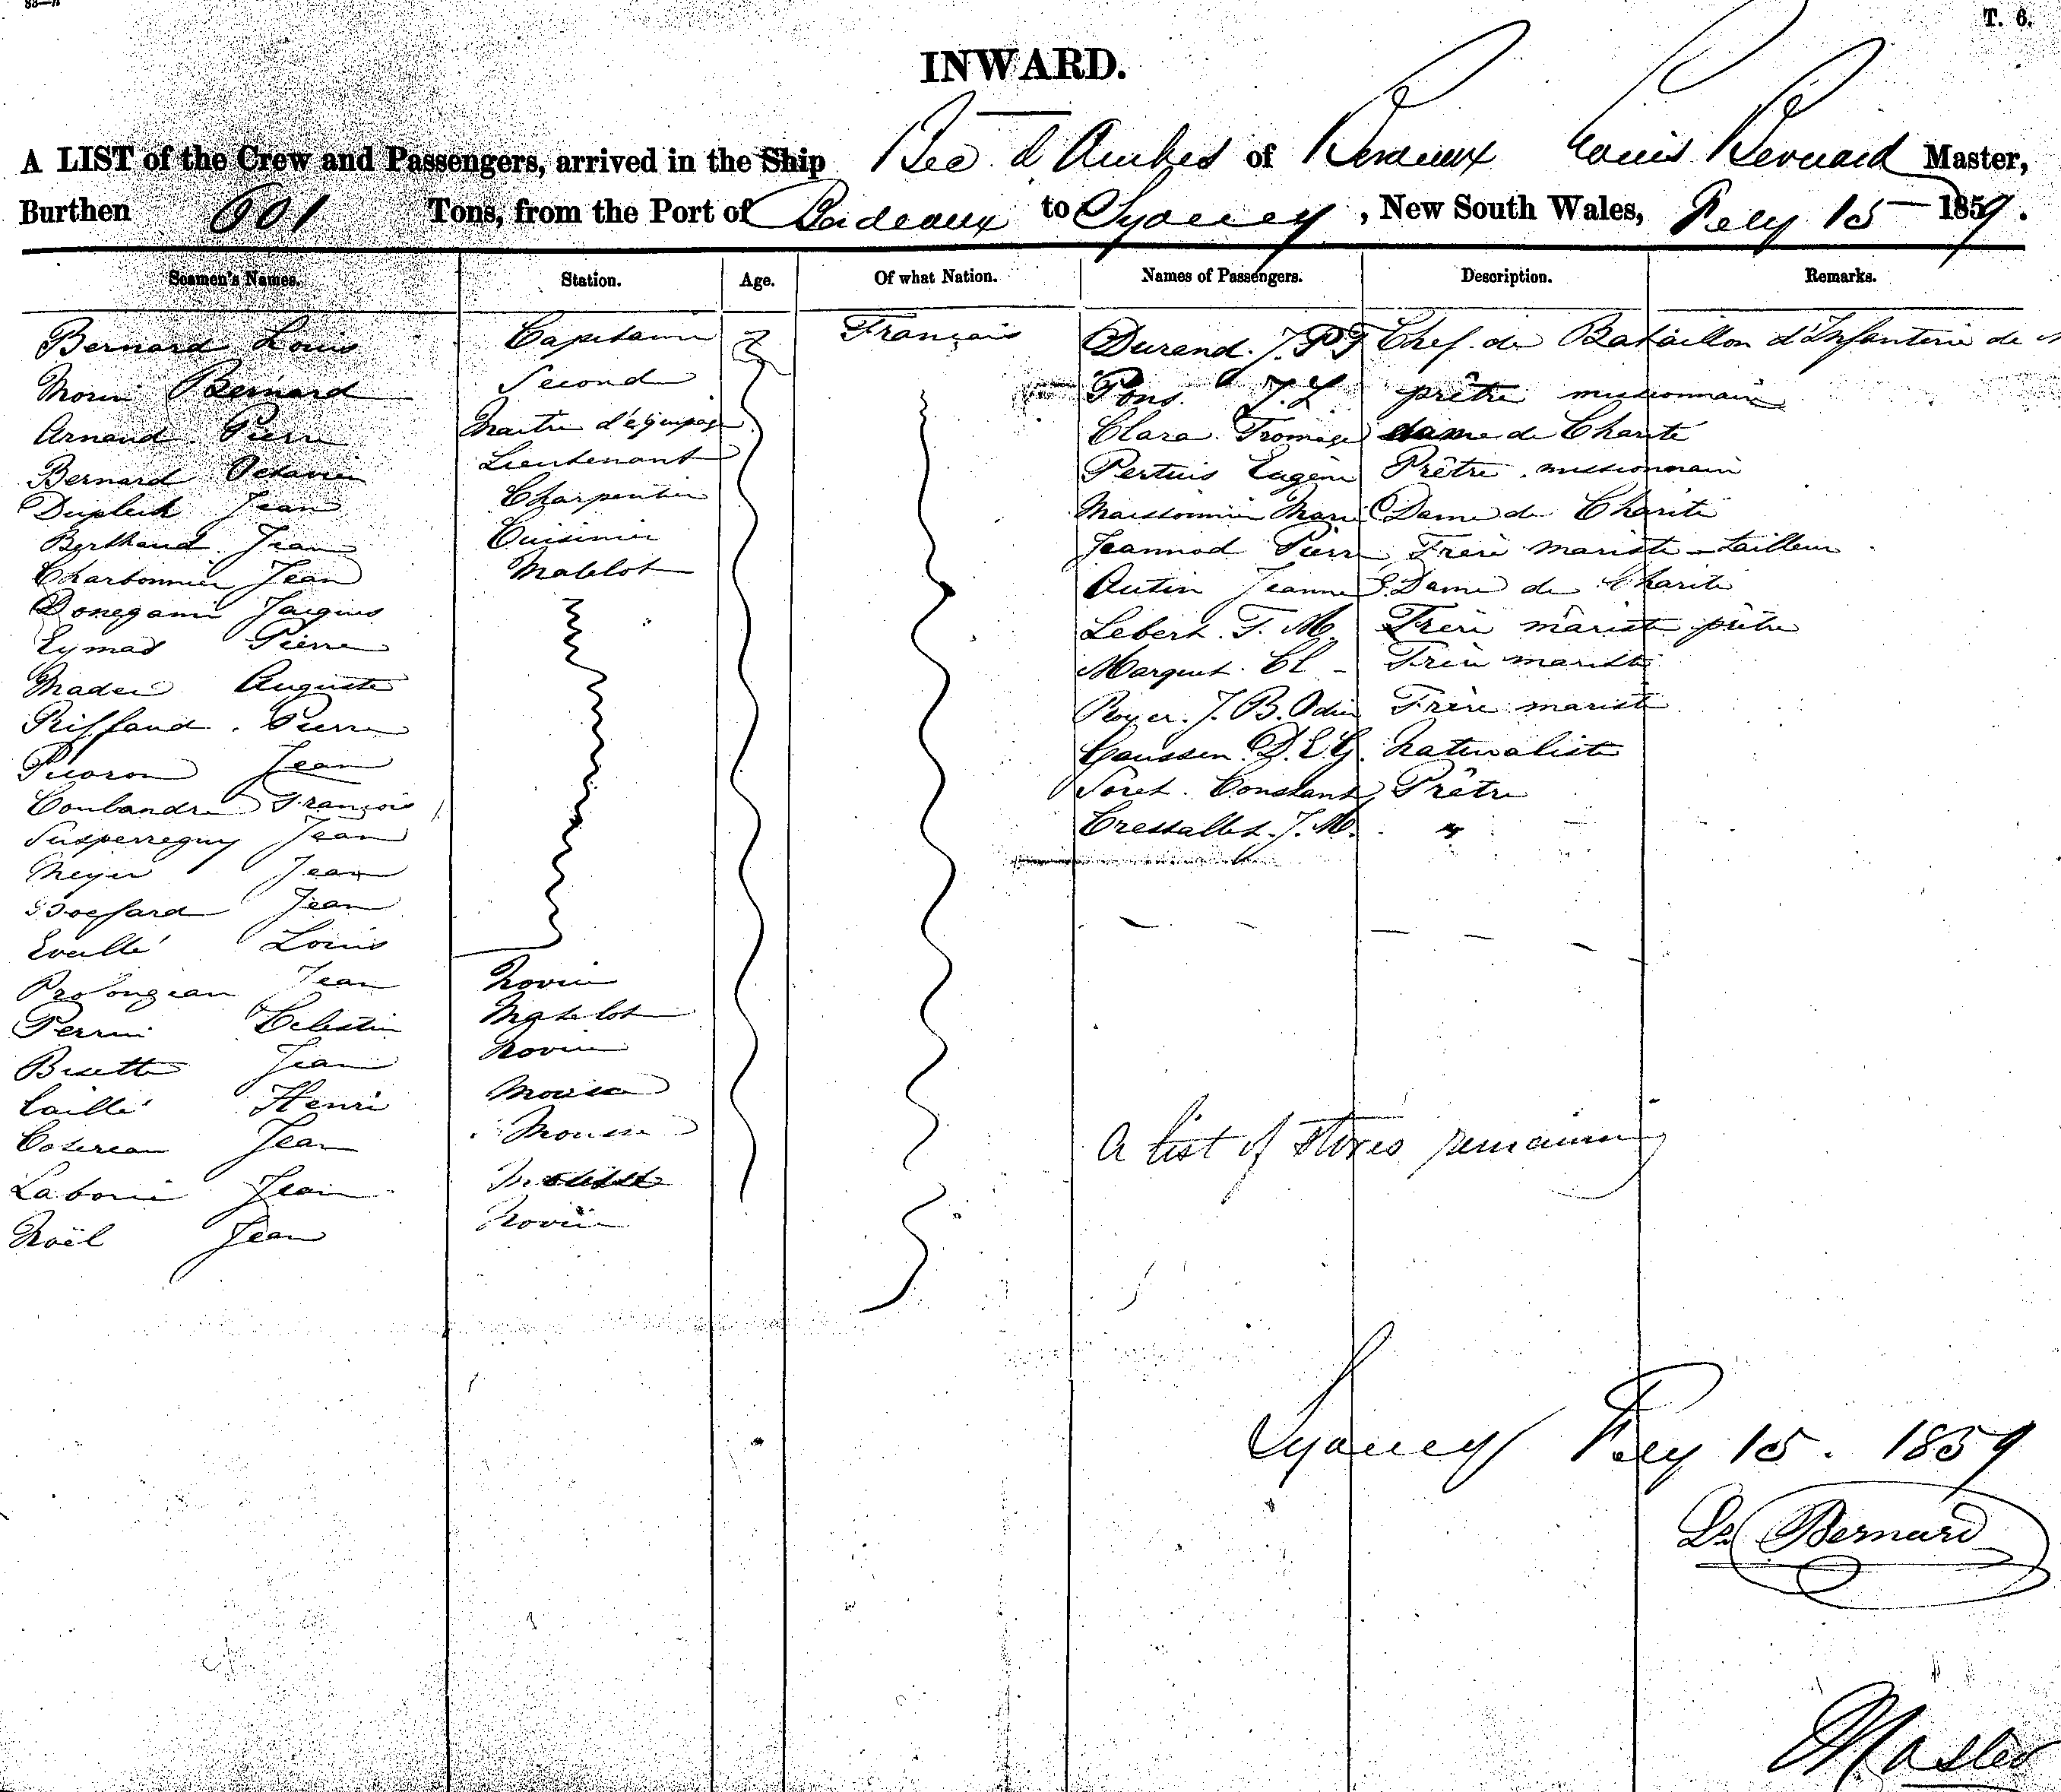 T. 6.
INWARD.
A LIST of the Crew and Passengers, arrived in the Ship Bec d'Ambes of Bordeaux Louis Bernard Master,
Burthen 601 Tons, from the Port of Bordeaux to Sydney, New South Wales, 15 1859.
Seamen's Names. Station. Age. Of what Nation. Names of Passengers. Description. Remarks.
Bernard Louis Capitaine Français Durand. J. Chef de Bataillon d'Infanterie de
Bernard Second Pons J. L prêtre missionnaire
Arnaud Pierre Maitre d'équipage Clara Fromage dame de Charité
Bernard Octavien Lieutenant Pertuis Eugène Prêtre missionnaire
Jean Charpentier Marie Dame de Charité
Berthaud Jean Cuisinier Jeannod Pierre Frère mariste - tailleur
Charbonnier Jean Matelot Autin Jeanne Dame de Charité
Donegami Jacques Lebert. F. M. Frère mariste prêtre
Eymas Pierre Marquet. Cl - Frère mariste
Auguste Royer. J. B. Frère mariste
Riffaud. Pierre Gaussen D. E. G. Naturaliste
Jean Soret. Constant Prêtre
Coulandre François J. M. "
Susperreguy Jean
Meyer Jean
Jean
Louis
Jean Novice
Perrin Celestin Matelot
Jean Novice
Caillé Henri Mousse
Cotereau Jean Mousse
A list of stores remaining
Laborie Jean
Noël Jean Novice
Sydney 15. 1859
Ls Bernard
Master